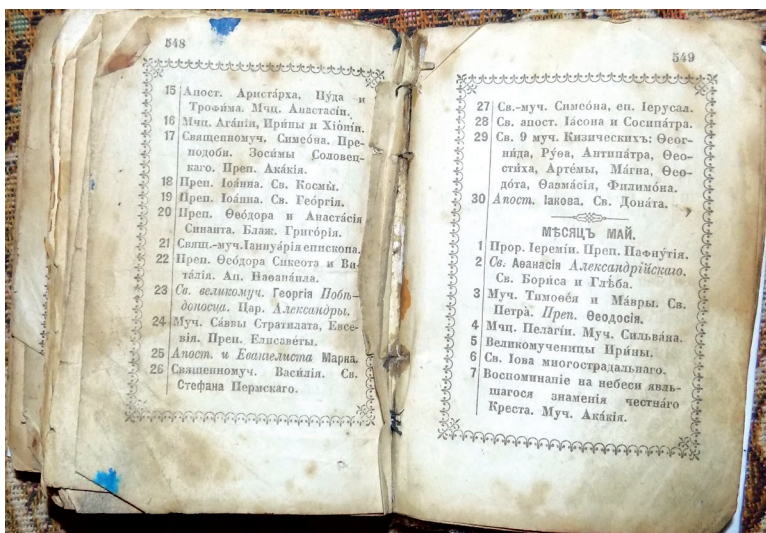 548
15 Апост. Аристáрха, Пýда и
Трофи́ма. Мчц. Анастасíи.
16 Мчц. Агáпіи, Ири́ны и Хіо́ніи.
17 Священномуч. Симео́на. Пре-
подобн. Зоси́мы Соловец-
каго. Преп. Акáкія.
18 Преп. Іоáнна. Св. Космы́.
19 Преп. Іоáнна. Св. Гео́ргія.
20 Преп. Ѳео́дора и Анастáсія
Синаита. Блаж. Григо́рія.
21 Свящ.-муч. Іаннуáрія епископа.
22 Преп. Ѳео́дора Сикеота и Ви-
тáлія. Ап. Наѳанáила.
23 Св. великомуч. Гео́ргія Побѣ-
доносца. Цар. Александры.
24 Муч. Сáввы Стратилата, Евсе-
вія. Преп. Елисавéты.
25 Апост. и Евангелиста Марка.
26 Священномуч. Васи́лія. Св.
Стефана Пермскаго.
549
27 Св.-муч. Симео́на, еп. Іерусал.
28 Св. апост. Іáсона и Сосипáтра.
29 Св. 9 муч. Кизическихъ: Ѳеог-
ни́да, Рýѳа, Антипáтра, Ѳео-
сти́ха, Артéмы, Мáгна, Ѳео-
до́та, Ѳавмáсія, Филимо́на.
30 Апост. Іакова. Св. Донáта.
МѢСЯЦЪ МАЙ.
1 Прор. Іеремíи. Преп. Пафнýтія.
2 Св. Аѳанасія Александрíйскаго.
Св. Бори́са и Глѣба.
3 Муч. Тимоѳéя и Мáвры. Св.
Петрá. Преп. Ѳеодосія.
4 Мчц. Пелагíи. Муч. Сильвáна.
5 Великомученицы Ири́ны.
6 Св. Іова многострадальнаго.
7 Воспоминаніе на небеси явль-
шагося знаменія честнáго
Креста. Муч. Акáкія.